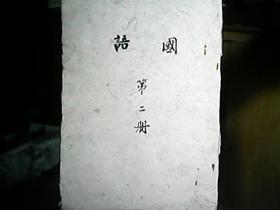 國語
第二册